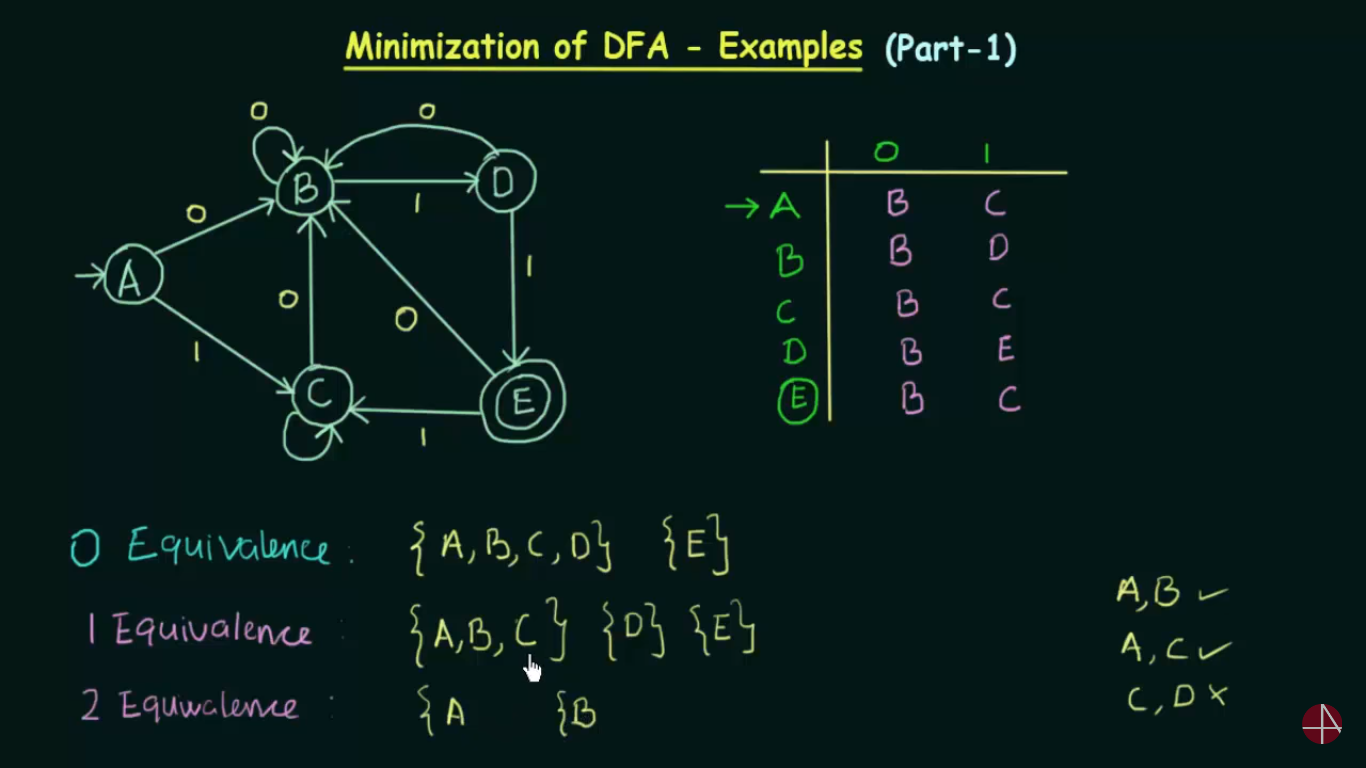 Minimization of DFA - Examples (Part-1)
0
0
B
D
1
0
1
A
0
0
1
C
E
1
0 1
→ A B C
B B D
C B C
D B E
E B C
0 Equivalence : {A, B, C, D} {E}
1 Equivalence : {A, B, C} {D} {E}
2 Equivalence : {A {B
A, B ✓
A, C ✓
C, D ×